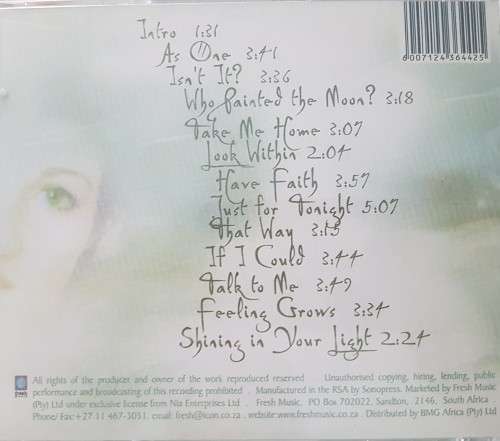 Intro 1:31
As One 3:41
Isn't It? 3:36
Who Painted the Moon? 3:18
Take Me Home 3:07
Look Within 2:04
Have Faith 3:57
Just for Tonight 5:07
That Way 3:15
If I Could 3:44
Talk to Me 3:49
Feeling Grows 3:34
Shining in Your Light 2:24
6007124364425
All rights of the producer and owner of the work reproduced reserved Unauthorised copying, hiring, lending, public
performance and broadcasting of this recording prohibited . Manufactured in the RSA by Sonopress. Marketed by Fresh Music
(Pty) Ltd under exclusive license from Nia Enterprises Ltd . Fresh Music. PO Box 702022, Sandton, 2146, South Africa
Phone/ Fax +27 11 467-3031. email: fresh@icon.co.za . website:www.freshmusic.co.za . Distributed by BMG Africa (Pty) Ltd